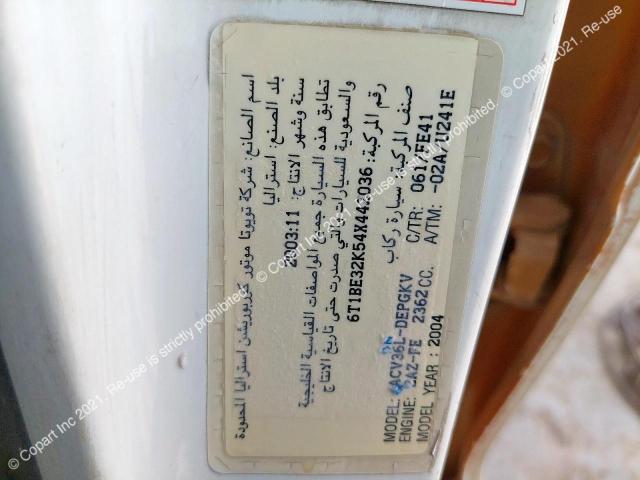 اسم الصانع: شركة تويوتا موتور كوربوريشن استراليا المحدودة
بلد الصنع: استراليا
سنة وشهر الانتاج: 2003:11
تطابق هذه السيارة جميع المواصفات القياسية الخليجية
والسعودية للسيارات والتي صدرت حتى تاريخ الانتاج
رقم المركبة: 6T1BE32K54X442036
صنف المركبة: سيارة ركاب
MODEL: ACV36L-DEPGKV C/TR:
ENGINE: 2AZ-FE 2362CC. A/TM: -02A/U241E
MODEL YEAR: 2004
© Copart Inc 2021. Re-use is strictly prohibited.
© Copart Inc 2021. Re-use
© Copart Inc 2021. Re-use